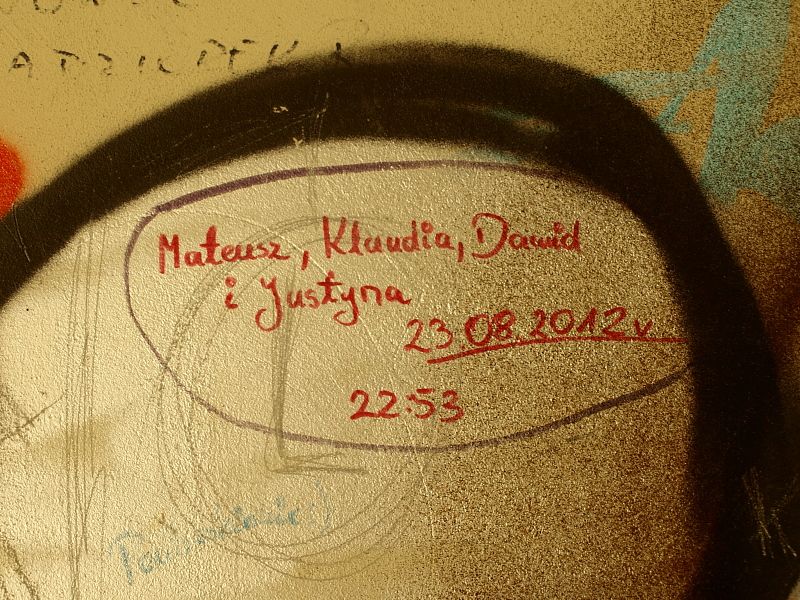 Mateusz, Klaudia, Dawid
i Justyna
23.08.2012r
22:53